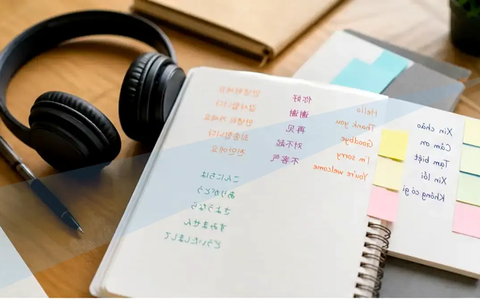 안녕하세요
감사합니다
안녕히 가세요
죄송합니다
천만에요
こんにちは
ありがとう
さようなら
すみません
どういたしまして
你好
谢谢
再见
对不起
不客气
Hello
Thank you
Goodbye
I'm sorry
You're welcome
Xin chào
Cảm ơn
Tạm biệt
Xin lỗi
Không có gì